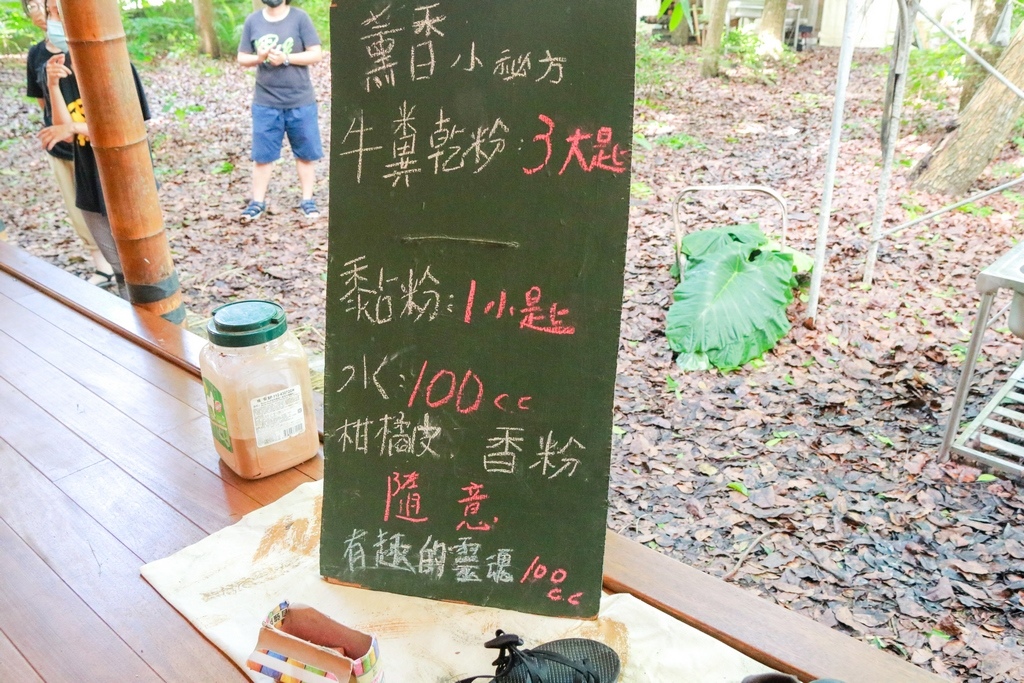 薰香小祕方
牛糞乾粉：3大匙
黏粉：1小匙
水：100cc
柑橘皮、香粉
隨意
有趣的靈魂100c.c